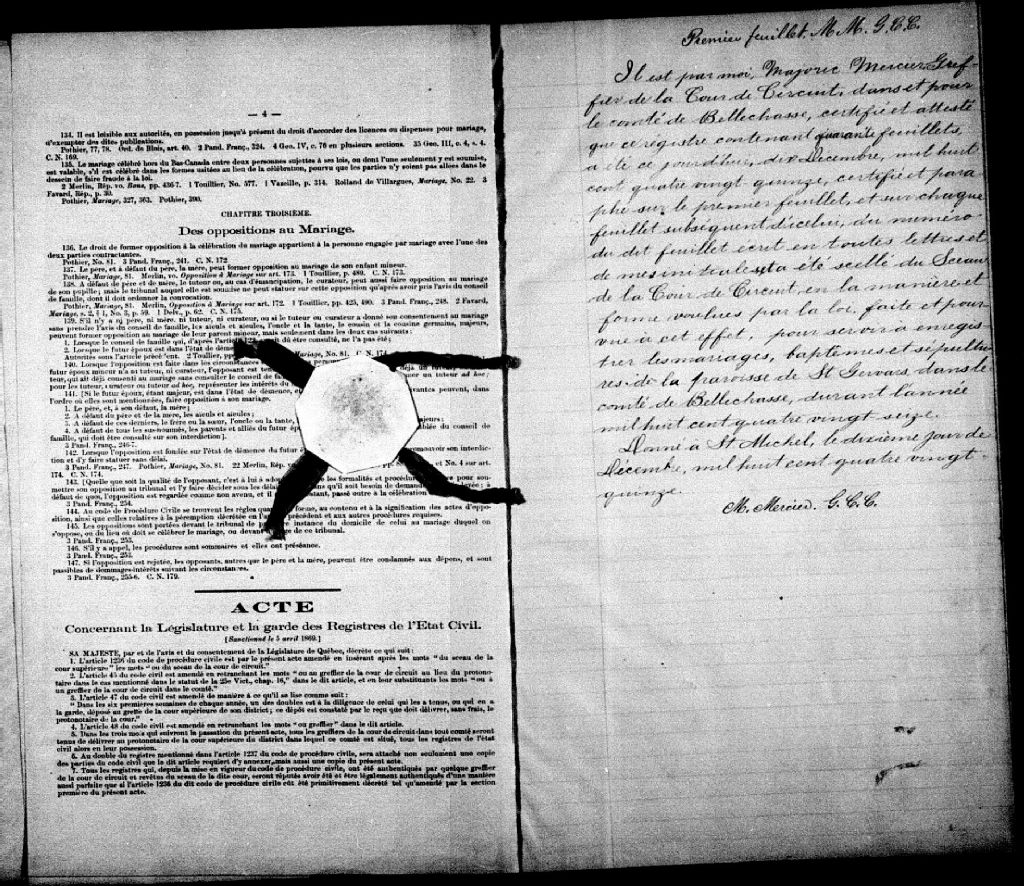 — 4 —
134. Il est loisible aux autorités, en possession jusqu'à présent du droit d'accorder des licences ou dispenses pour mariage,
d'exempter des dites publications.
Pothier, 77, 78. Ord. de Blois, art. 40. 2 Pand. Franç., 324. 4 Geo. IV, c. 76 en plusieurs sections. 35 Geo. III, c. 4, s. 4.
C. N. 169.
135. Le mariage célébré hors du Bas-Canada entre deux personnes sujettes à ses lois, ou dont l'une seulement y est soumise,
est valable, s'il est célébré dans les formes usitées au lieu de la célébration, pourvu que les parties n'y soient pas allées dans le
dessein de faire fraude à la loi.
2 Merlin, Rép. vo. Bans, pp. 436-7. 1 Toullier, No. 577. 1 Vazeille, p. 214. Rolland de Villargues, Mariage, No. 22. 3
Favard, Rép., p. 30.
Pothier, Mariage, 327, 363. Pothier, 390.
CHAPITRE TROISIÈME.
Des oppositions au Mariage.
136. Le droit de former opposition à la célébration du mariage appartient à la personne engagée par mariage avec l'une des
deux parties contractantes.
Pothier, No. 81. 3 Pand. Franç., 241. C. N. 172
137. Le père, et à défaut du père, la mère, peut former opposition au mariage de son enfant mineur.
Pothier, Mariage, 81. Merlin, vo. Opposition à Mariage sur art. 173. 1 Toullier, p. 489. C. N. 173.
138. A défaut de père et de mère, le tuteur ou, au cas d'émancipation, le curateur, peut aussi faire opposition au mariage
de son pupille; mais le tribunal auquel elle est soumise ne peut statuer sur cette opposition qu'après avoir pris l'avis du conseil
de famille, dont il doit ordonner la convocation.
Pothier, Mariage, 81. Merlin, Opposition à Mariage sur art. 172. 1 Toullier, pp. 425, 490. 3 Pand. Franç., 248. 2 Favard,
Mariage, s. 2, § 1, No. 3, p. 59. 1 Delv., p. 62. C. N. 175.
139. S'il n'y a ni père, ni mère, ni tuteur, ni curateur, ou si le tuteur ou curateur a donné son consentement au mariage
sans prendre l'avis du conseil de famille, les aïeuls et aïeules, l'oncle et la tante, le cousin et la cousine germains, majeurs,
peuvent former opposition au mariage de leur parent mineur, mais seulement dans les deux cas suivants:
1. Lorsque le conseil de famille qui, d'après l'article 122 dû être consulté, ne l'a pas été;
2. Lorsque le futur époux est dans l'état de démence
Autorités sous l'article précédent. 2 Toullier, Mariage, No. 81. C. N. 174
140. Lorsque l'opposition est faite dans les circonstances
futur époux mineur n'a ni tuteur, ni curateur, l'opposant est déjà un tuteur
teur, qui ait déjà consenti au mariage sans consulter le conseil de un tuteur ad hoc;
pour les tuteur, curateur ou tuteur ad hoc, représenter les intérêts du
141. [Si le futur époux, étant majeur, est dans l'état de démence, vantes peuvent, dans
l'ordre où elles sont mentionnées, faire opposition à son mariage.
1. Le père, et, à son défaut, la mère;
2. A défaut du père et de la mère, les aïeuls et aïeules;
3. A défaut de ces derniers, le frère ou la sœur, l'oncle ou la tante, majeurs;
4. A défaut de tous les sus-nommés, les parents et alliés du futur blée du conseil de
famille, qui doit être consulté sur son interdiction].
3 Pand. Franç., 246-7.
142. Lorsque l'opposition est fondée sur l'état de démence du futur promouvoir son interdic-
tion et d'y faire statuer sans délai.
3 Pand. Franç., 247. Pothier, Mariage, No. 81. 22 Merlin, Rép. vo et No. 4 sur art.
174. C. N. 174.
143. [Quelle que soit la qualité de l'opposant, c'est à lui à les formalités et procédures pour sou-
mettre son opposition au tribunal et l'y faire décider sous les délais sans qu'il soit besoin de demande à
défaut de quoi, l'opposition est regardée comme non avenue, et il passé outre à la célébration
3 Pand. Franç., 254.
144. Au code de Procédure Civile se trouvent les règles quant forme, au contenu et à la signification des actes d'oppo-
sition, ainsi que celles relatives à la péremption décrétée en l'article précédent et aux autres procédures requises.
145. Les oppositions sont portées devant le tribunal de première instance du domicile de celui au mariage duquel on
s'oppose, ou du lieu où doit se célébrer le mariage, ou devant de ce tribunal.
3 Pand. Franç., 253.
146. S'il y a appel, les procédures sont sommaires et elles ont préséance.
3 Pand. Franç., 253.
147. Si l'opposition est rejetée, les opposants, autres que le père et la mère, peuvent être condamnés aux dépens, et sont
passibles de dommages-intérêts suivant les circonstances.
3 Pand. Franç., 255-6. C. N. 179.
ACTE
Concernant la Législature et la garde des Registres de l'Etat Civil.
[Sanctionné le 5 avril 1869.]
SA MAJESTE, par et de l'avis et du consentement de la Législature de Québec, décrète ce qui suit:
1. L'article 1236 du code de procédure civile est par le présent acte amendé en insérant après les mots "du sceau de la
cour supérieure" les mots "ou du sceau de la cour de circuit."
2. L'article 45 du code civil est amendé en retranchant les mots "ou au greffier de la cour de circuit au lieu du protono-
taire dans le cas mentionné dans le statut de la 25e Vict., chap. 16," dans le dit article, et en leur substituant les mots "ou à
un greffier de la cour de circuit dans le comté."
3. L'article 47 du code civil est amendé de manière à ce qu'il se lise comme suit:
"Dans les six premières semaines de chaque année, un des doubles est à la diligence de celui qui les a tenus, ou qui en a
la garde, déposé au greffe de la cour supérieure de son district; ce dépôt est constaté par le reçu que doit délivrer, sans frais, le
protonotaire de la cour."
4. L'article 48 du code civil est amendé en retranchant les mots "ou greffier" dans le dit article.
5. Dans les trois mois qui suivront la passation du présent acte, tous les greffiers de la cour de circuit dans tout comté seront
tenus de délivrer au protonotaire de la cour supérieure du district dans lequel ce comté est situé, tous les registres de l'état
civil alors en leur possession.
6. Au double du registre mentionné dans l'article 1237 du code de procédure civile, sera attaché non seulement une copie
des parties du code civil que le dit article requiert d'y annexer, mais aussi une copie du présent acte.
7. Tous les registres qui, depuis la mise en vigueur du code de procédure civile, ont été authentiqués par quelque greffier
de la cour de circuit et revêtus du sceau de la dite cour, seront réputés avoir été et être légalement authentiqués d'une manière
aussi parfaite que si l'article 1236 du dit code de procédure civile eût été primitivement décrété tel qu'amendé par la section
première du présent acte.
Premier feuillet. M. M. G. C. C.
Il est par moi, Majoric Mercier Gref-
fier de la Cour de Circuit, dans et pour
le comté de Bellechasse, certifié et attesté
que ce régistre contenant quarante feuillets,
a été ce jourd'hui, dix Décembre, mil huit
cent quatre vingt quinze, certifié et para-
phé sur le premier feuillet, et sur chaque
feuillet subséquent d'icelui, du numéro
du dit feuillet écrit en toutes lettres et
de mes initiales et a été scellé du Sceau
de la Cour de Circuit, en la manière et
forme voulues par la loi, faite et pour-
vue à cet effet, pour servir à enregis-
trer les mariages, baptêmes et sépultu-
res de la paroisse de St Gervais, dans le
comté de Bellechasse, durant l'année
mil huit cent quatre vingt seize.
Donné à St Michel, le dixième jour de
Décembre, mil huit cent quatre vingt-
quinze.
M. Mercier. G. C. C.